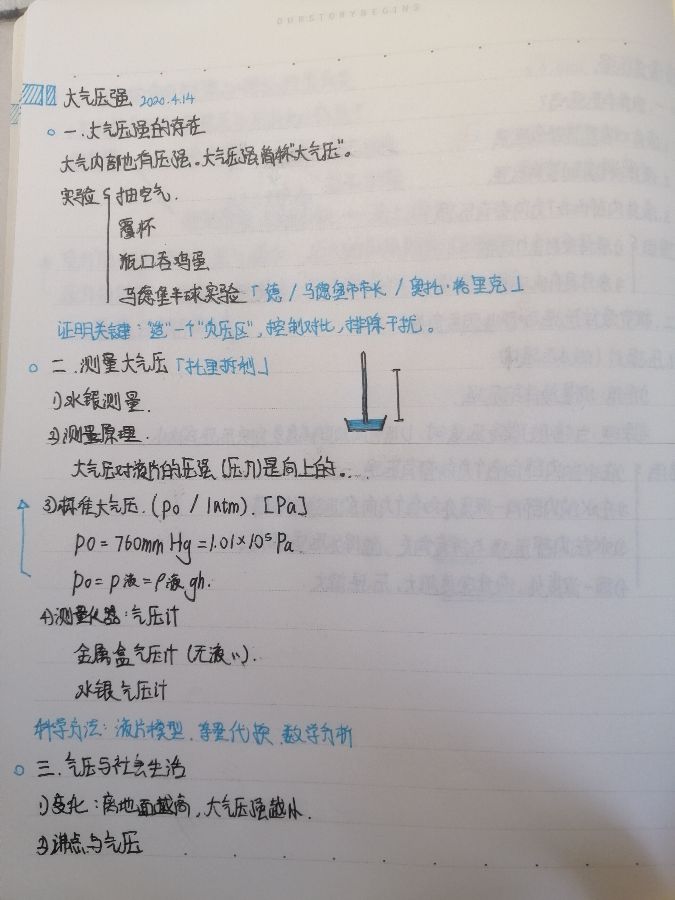 OURSTORYBEGINS
大气压强 2020.4.14
一.大气压强的存在
大气内部也有压强。大气压强简称"大气压"。
实验 抽空气.
覆杯
瓶口吞鸡蛋
马德堡半球实验「德/马德堡市市长/奥托·格里克」
证明关键:"造"一个"负压区",控制对比,排除干扰。
二.测量大气压「托里拆利」
1)水银测量.
2)测量原理.
大气压对液片的压强(压力)是向上的....
3)标准大气压.(p0 / 1atm).[Pa]
p0=760mmHg=1.01×10⁵Pa.
p0=p液=ρ液gh.
4)测量仪器:气压计
金属盒气压计(无液〃).
水银气压计
科学方法:液片模型.等量代换.数学分析
三.气压与社会生活
1)变化:离地面越高,大气压强越小.
2)沸点与气压